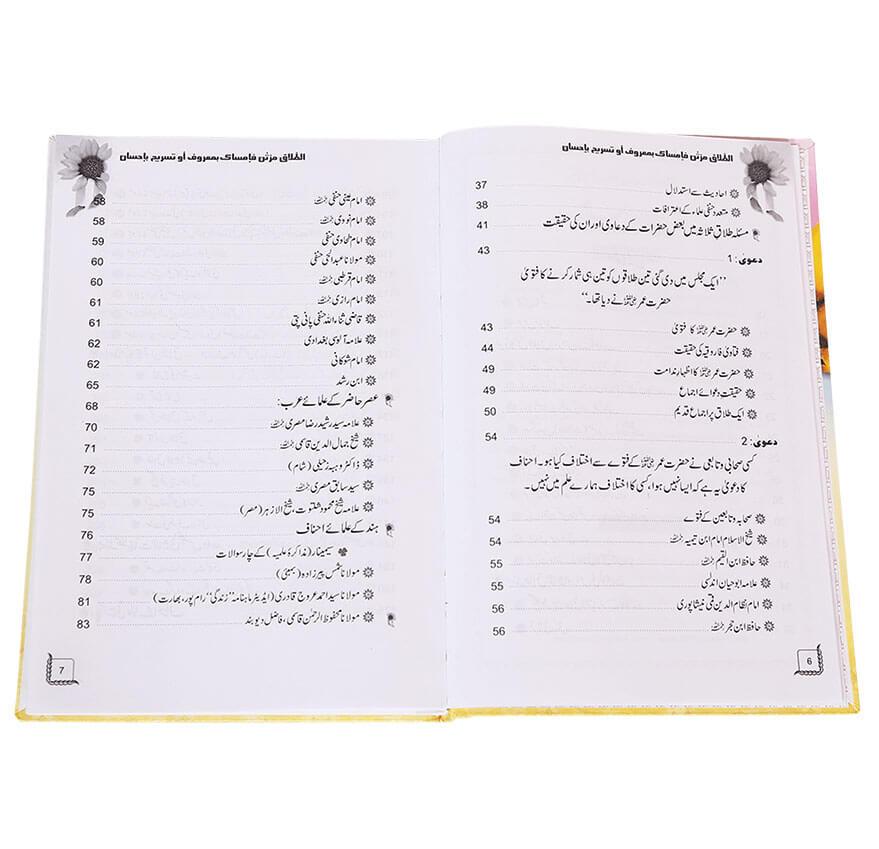 الطلاق مرتٰن فإمساك بمعروف أو تسريح بإحسان
احادیث سے استدلال 37
متعدد حنفی علماء کے اعترافات 38
مسئلہ طلاقِ ثلاثہ میں بعض حضرات کے دعاوی اور ان کی حقیقت 41
دعویٰ : 1 43
’’ایک مجلس میں دی گئی تین طلاقوں کو تین ہی شمار کرنے کا فتویٰ
حضرت عمر رضی اللہ عنہ نے دیا تھا۔‘‘
حضرت عمر رضی اللہ عنہ کا فتویٰ 43
فتاویٰ فاروقیہ کی حقیقت 44
حضرت عمر رضی اللہ عنہ کا اظہارِ ندامت 49
حقیقت دعوائے اجماع 49
ایک طلاق پر اجماع قدیم 50
دعویٰ : 2 54
کسی صحابی و تابعی نے حضرت عمر رضی اللہ عنہ کے فتوے سے اختلاف کیا ہو۔ احناف
کا دعویٰ یہ ہے کہ ایسا نہیں ہوا، کسی کا اختلاف ہمارے علم میں نہیں۔
صحابہ و تابعین کے فتوے 54
شیخ الاسلام امام ابن تیمیہ رحمہ اللہ 54
حافظ ابن القیم رحمہ اللہ 55
علامہ ابو حیان اندلسی 55
امام نظام الدین قمی نیشاپوری 56
حافظ ابن حجر رحمہ اللہ 56
6
الطلاق مرتٰن فإمساك بمعروف أو تسريح بإحسان
امام عینی حنفی رحمہ اللہ 58
امام نووی رحمہ اللہ 58
امام طحاوی حنفی 59
مولانا عبدالحئی حنفی 60
امام قرطبی رحمہ اللہ 60
امام رازی رحمہ اللہ 61
قاضی ثناء اللہ حنفی پانی پتی 61
علامہ آلوسی بغدادی 62
امام شوکانی 62
ابن رشد 65
عصر حاضر کے علمائے عرب: 68
علامہ سید رشید رضا مصری رحمہ اللہ 70
شیخ جمال الدین قاسمی رحمہ اللہ 71
ڈاکٹر وہبہ زحیلی (شام) 72
سید سابق مصری رحمہ اللہ 75
علامہ شیخ محمود شلتوت، شیخ الازہر (مصر) 75
ہند کے علمائے احناف 76
سیمینار (مذاکرۂ علمیہ) کے چار سوالات 77
مولانا شمس پیرزادہ (بمبئی) 78
مولانا سید احمد عروج قادری (ایڈیٹر ماہنامہ ’’زندگی‘‘ رام پور، بھارت) 81
مولانا محفوظ الرحمٰن قاسمی، فاضل دیوبند 83
7